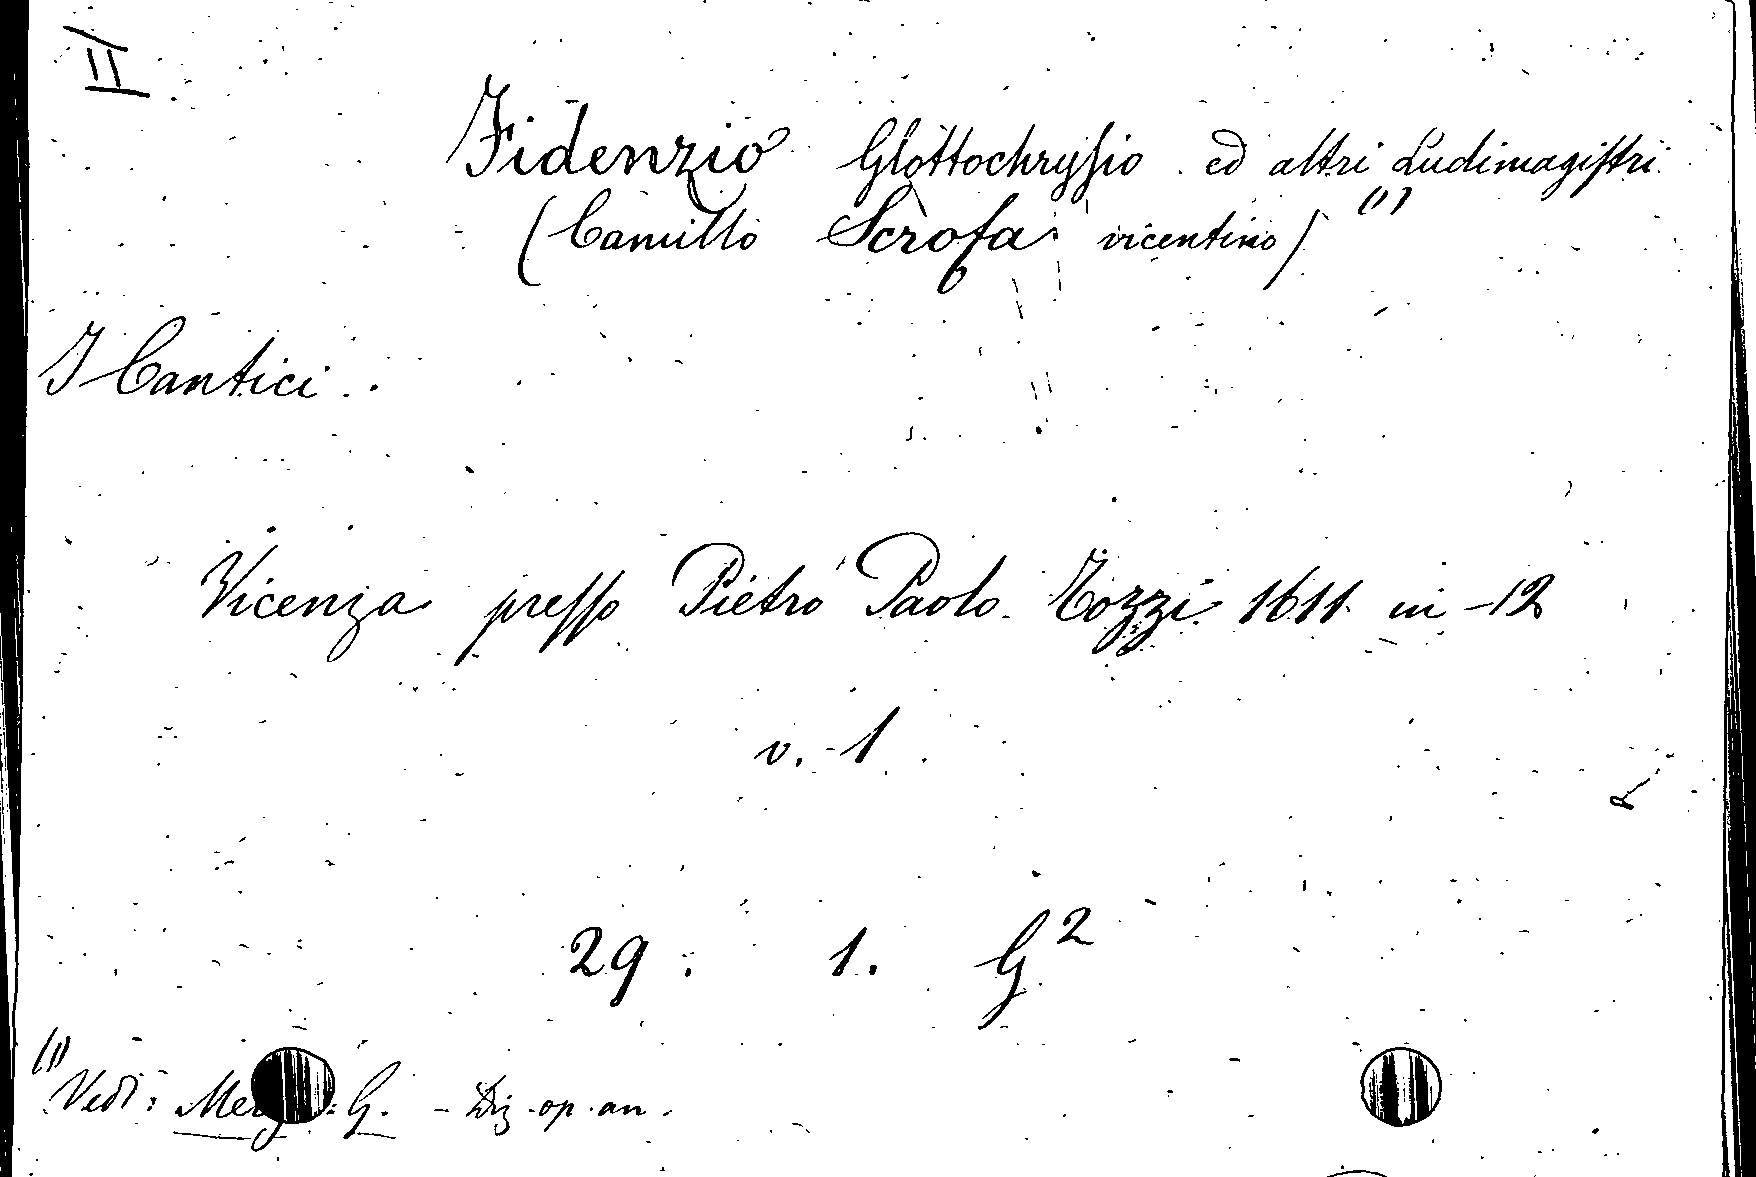 II
Fidenzio Glottochryſio ed altri Ludimagiſtri
(Camillo Scrofa vicentino) (1)
I Cantici.
Vicenza preſſo Pietro Paolo Tozzi 1611 in -12
v. 1
29. 1. G²
(1) Vedi: G. - Diz. op. an.